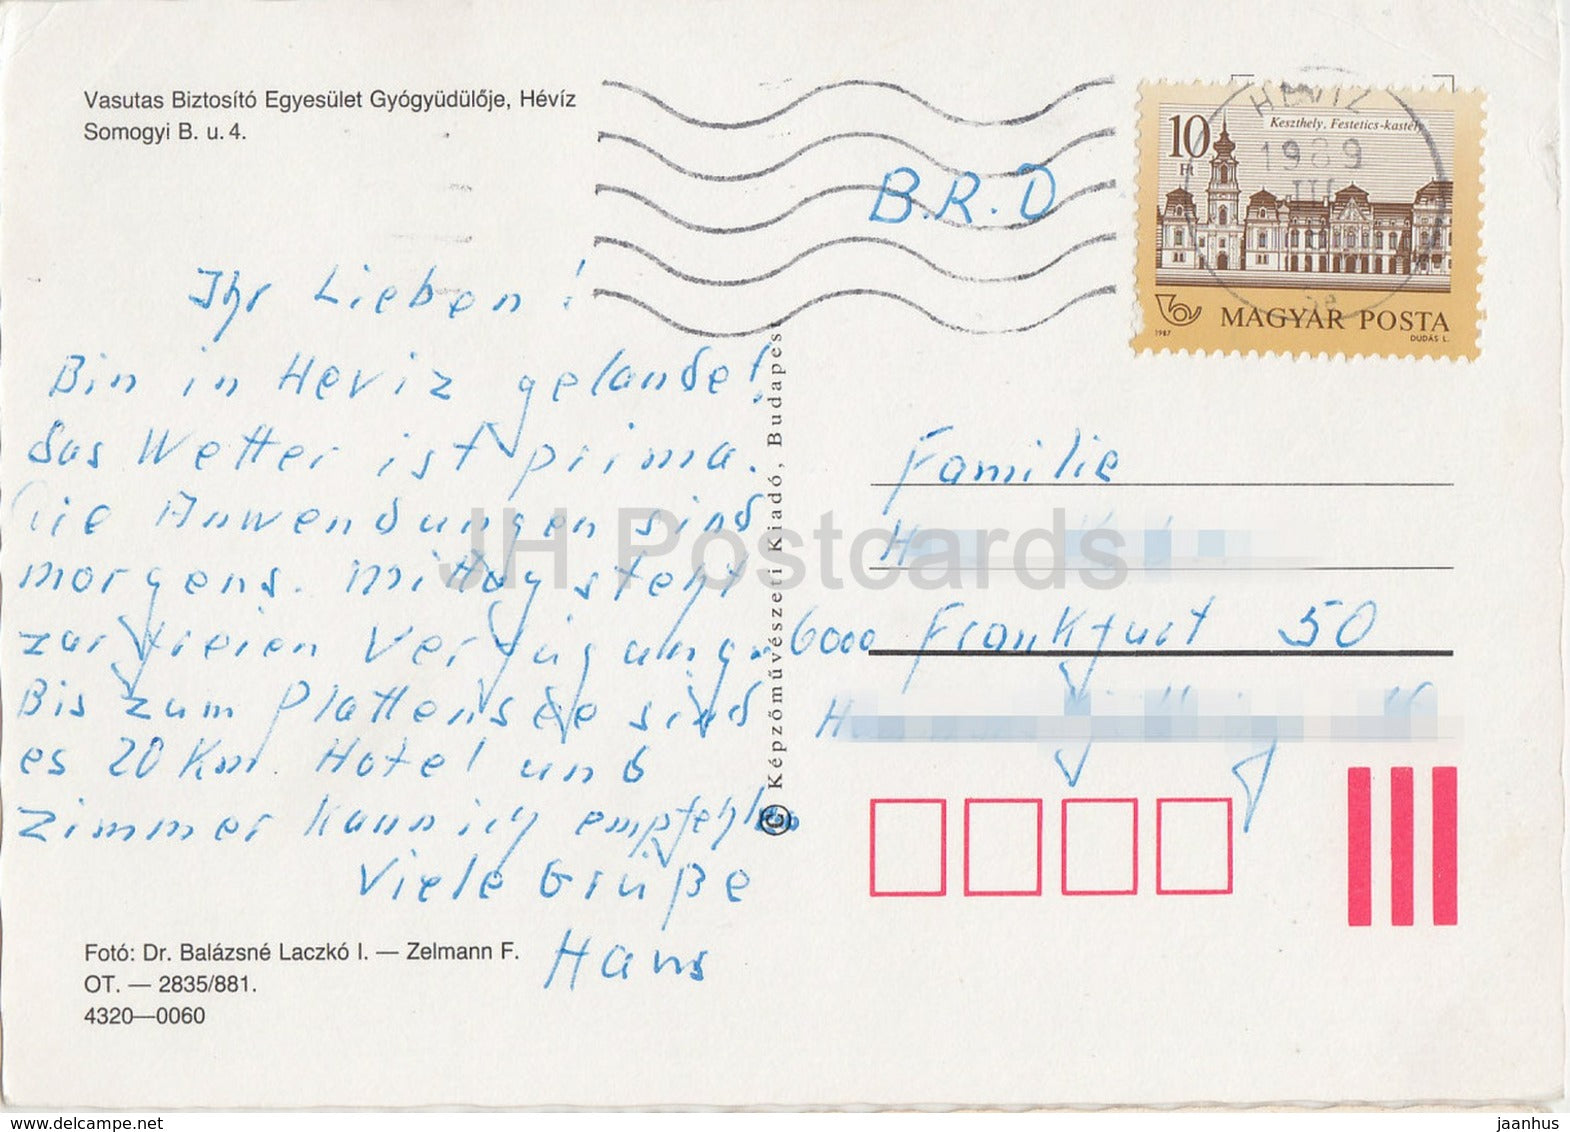 Vasutas Biztosító Egyesület Gyógyüdülője, Hévíz
Somogyi B. u. 4.
B.R.D
10
Ft
Keszthely, Festetics-kastély
HÉVÍZ
1989
III
1987
MAGYAR POSTA
DUDÁS L.
Ihr Lieben!
Bin in Heviz gelandet.
Das Wetter ist prima.
Die Anwendungen sind
morgens. Mittag steht
zur freien Verfügung.
Bis zum Plattensee sind
es 20 Km. Hotel und
Zimmer kann ich empfehlen
Viele Grüße
Hans
Familie
H
6000 Frankfurt 50
H
© Képzőművészeti Kiadó, Budapest
Fotó: Dr. Balázsné Laczkó I. — Zelmann F.
OT. — 2835/881.
4320—0060
JH Postcards
www.delcampe.net
jaanhus